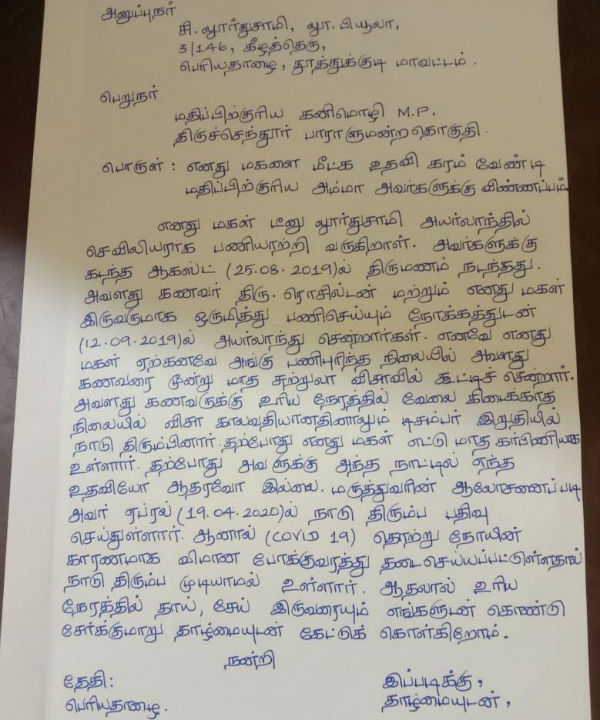 அனுப்புநர்
சி. லூர்துசாமி, லூ. பியூலா,
3/146, கீழத்தெரு,
பெரியதாழை, தூத்துக்குடி மாவட்டம்.
பெறுநர்
மதிப்பிற்குரிய கனிமொழி M.P.
திருச்செந்தூர் பாராளுமன்ற தொகுதி.
பொருள் : எனது மகளை மீட்க உதவி கரம் வேண்டி
மதிப்பிற்குரிய அம்மா அவர்களுக்கு விண்ணப்பம்
எனது மகள் மீனு லூர்துசாமி அயர்லாந்தில்
செவிலியராக பணியாற்றி வருகிறாள். அவர்களுக்கு
கடந்த ஆகஸ்ட் (25.08.2019)ல் திருமணம் நடந்தது.
அவளது கணவர் திரு. ரொசில்டன் மற்றும் எனது மகள்
இருவருமாக ஒருமித்து பணிசெய்யும் நோக்கத்துடன்
(12.09.2019)ல் அயர்லாந்து சென்றார்கள். எனவே எனது
மகள் ஏற்கனவே அங்கு பணிபுரிந்த நிலையில் அவளது
கணவரை மூன்று மாத சுற்றுலா விசாவில் கூட்டிச் சென்றார்.
அவளது கணவருக்கு உரிய நேரத்தில் வேலை கிடைக்காத
நிலையில் விசா காலவதியானதினாலும் டிசம்பர் இறுதியில்
நாடு திரும்பினார். தற்போது எனது மகள் எட்டு மாத கர்பிணியாக
உள்ளார். தற்போது அவளுக்கு அந்த நாட்டில் எந்த
உதவியோ ஆதரவோ இல்லை. மருத்துவரின் ஆலோசணைப்படி
அவர் ஏப்ரல் (19.04.2020)ல் நாடு திரும்ப பதிவு
செய்துள்ளார். ஆனால் (COVID 19) தொற்று நோயின்
காரணமாக விமான போக்குவரத்து தடைசெய்யப்பட்டுள்ளதால்
நாடு திரும்ப முடியாமல் உள்ளார். ஆதலால் உரிய
நேரத்தில் தாய், சேய் இருவரையும் எங்களுடன் கொண்டு
சேர்க்குமாறு தாழ்மையுடன் கேட்டுக் கொள்கிறோம்.
நன்றி
தேதி: இப்படிக்கு,
பெரியதாழை. தாழ்மையுடன்,